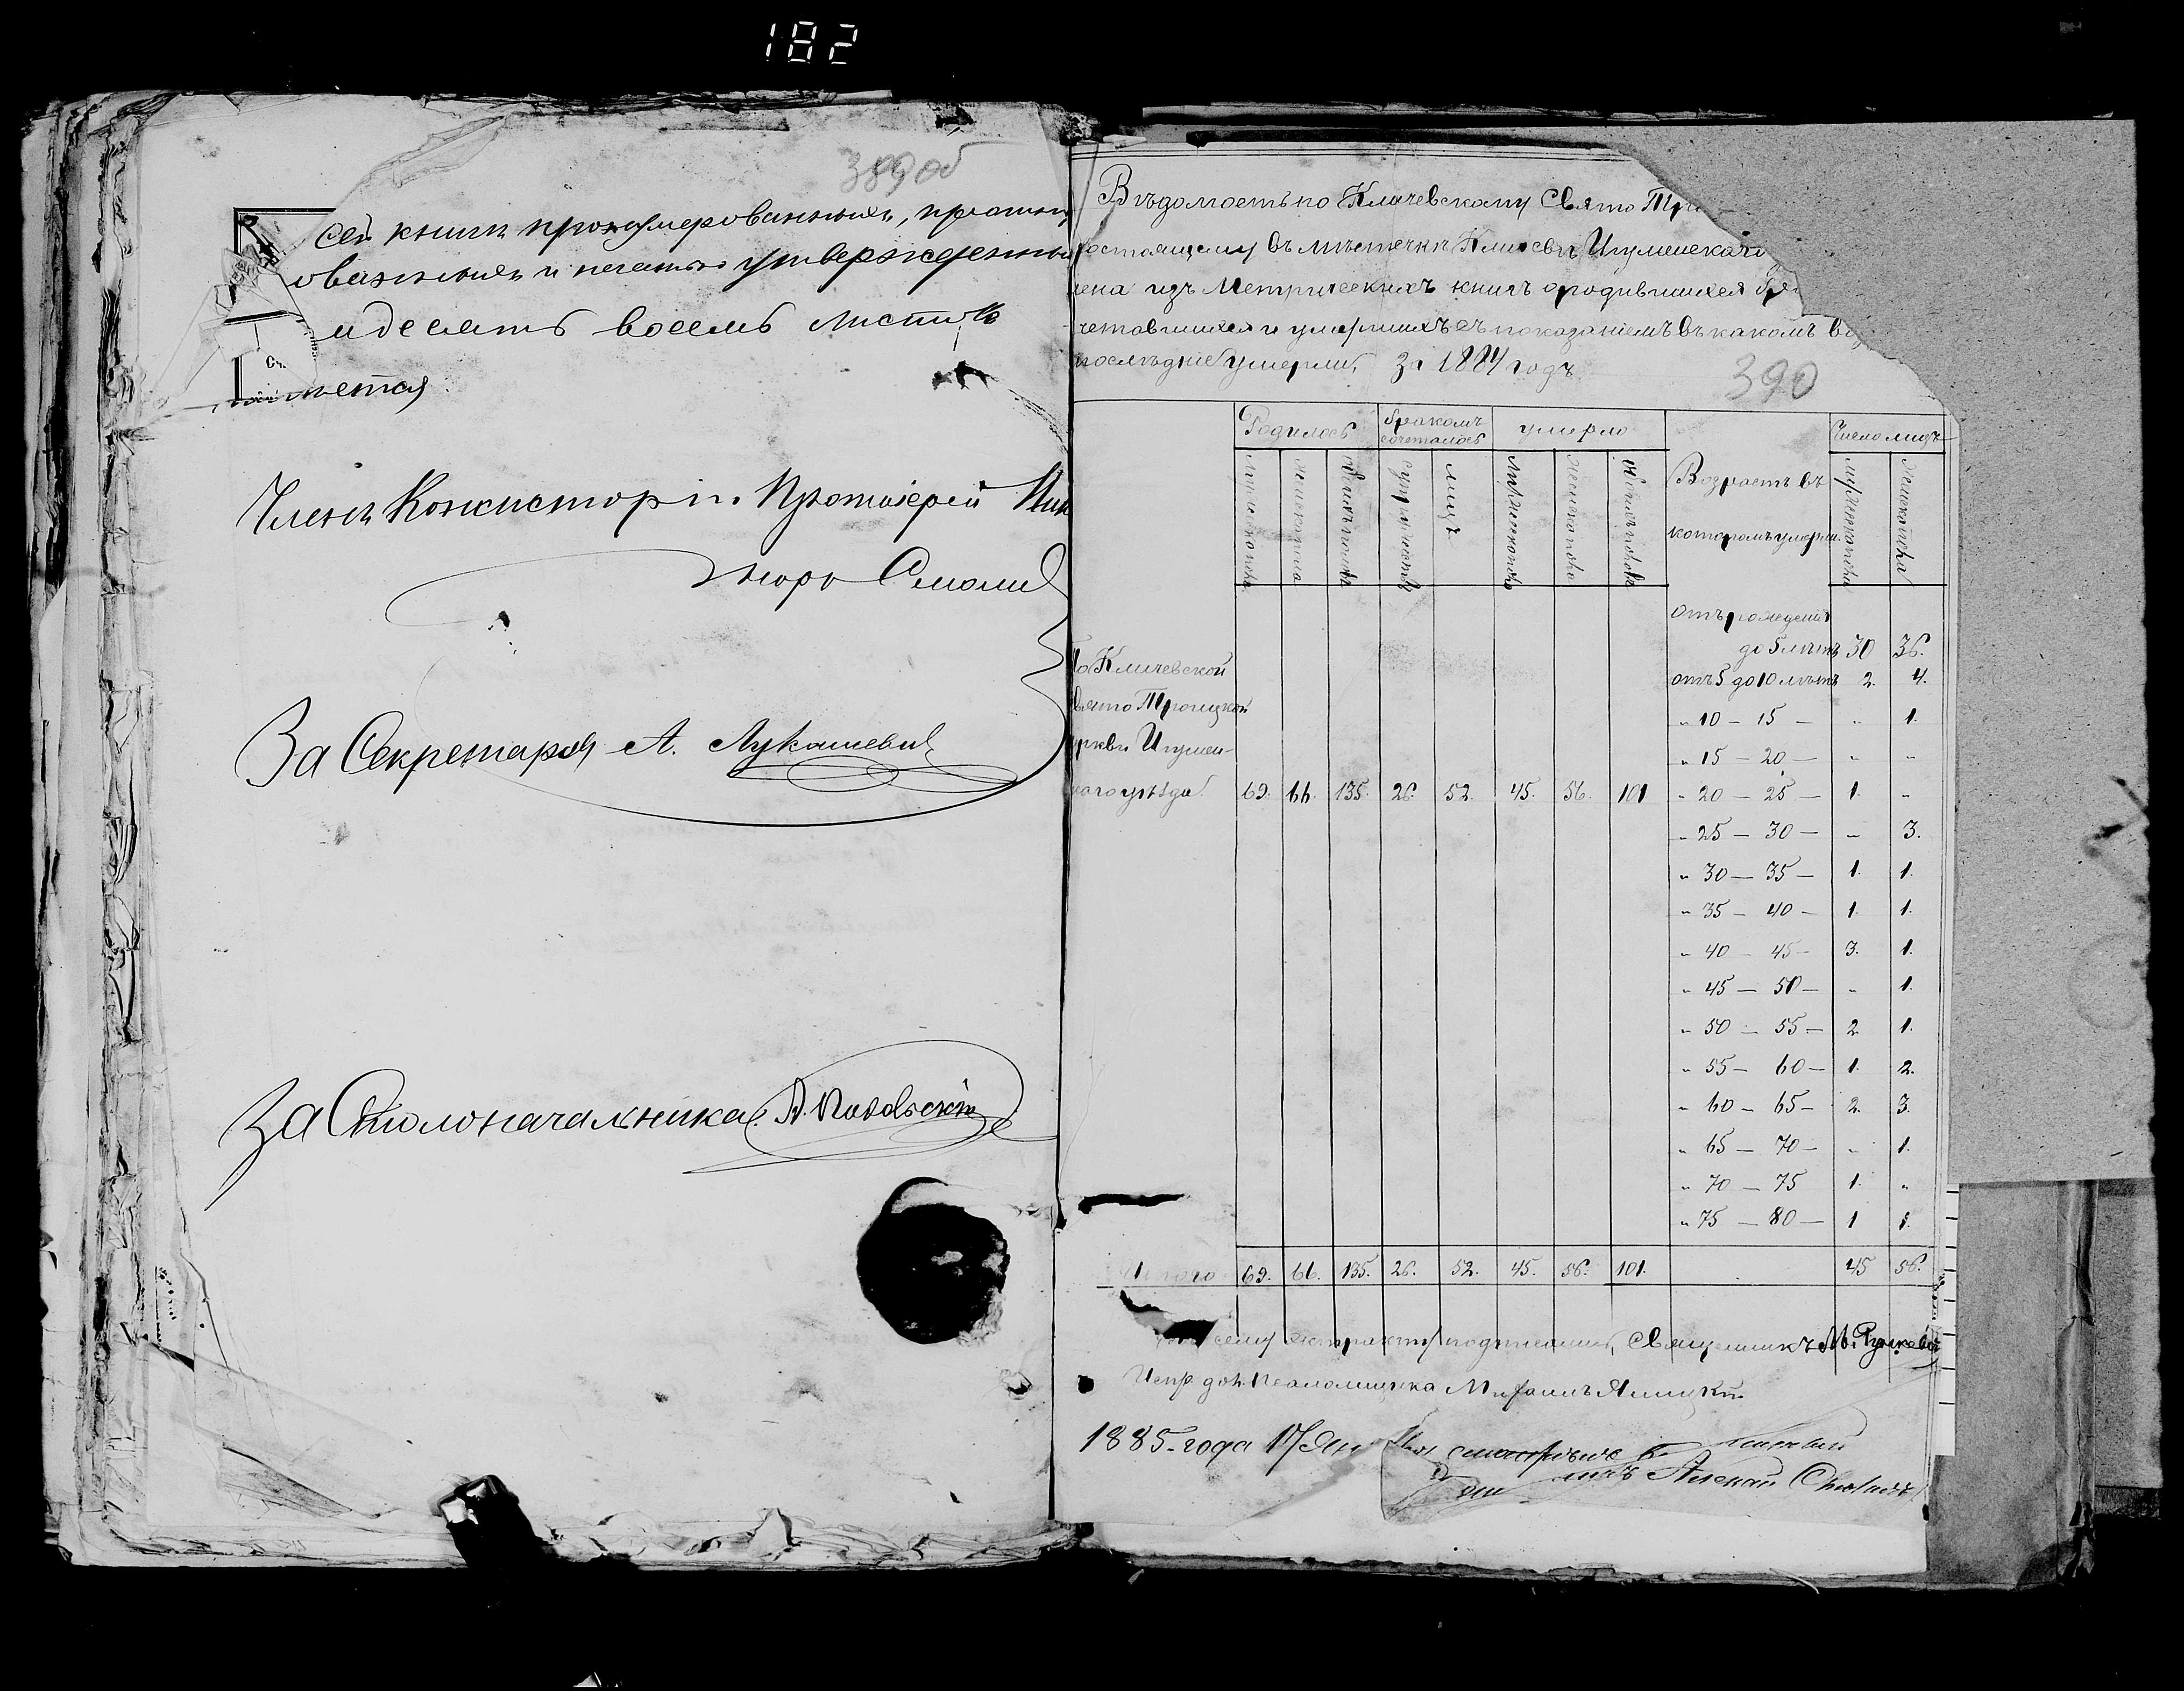 182
389 об
сей книги пронумерованныхъ, прошну
ованныхъ и печатью утвержденны
идесять восемь листовъ
яется
Членъ Консисторіи Протоіерей
За Секретаря А. Лукашевичъ
За Столоначальника
Вѣдомость по Кличевскому Свято Тро
состоящему въ мѣстечкѣ Кличевѣ Игуменскаго
лена изъ Метрическихъ книгъ о родившихся бра
четавшихся и умершихъ съ показаніемъ въ какомъ во
послѣдніе умерли, за 1884 годъ
390
Родилось
бракомъ сочеталось
умерло
Возрастъ въ которомъ умерли
Число лицъ
мужеска пола
женска пола
обоихъ пола
супружествъ
лицъ
мужеска пола
женска пола
обоихъ пола
мужеска пола
женска пола
Отъ рожденія
до 5 лѣтъ 30 36.
отъ 5 до 10 лѣтъ 2. 4.
" 10 — 15 — " 1.
" 15 — 20 — " "
По Кличевской
Свято Троицкой
церкви Игумен-
скаго уѣзда 69. 66. 135. 26. 52. 45. 56. 101
" 20 — 25 — 1. "
" 25 — 30 — " 3.
" 30 — 35 — 1. 1.
" 35 — 40 — 1. 1.
" 40 — 45 — 3. 1.
" 45 — 50 — " 1.
" 50 — 55 — 2. 1.
" 55 — 60 — 1. 2.
" 60 — 65 — 2. 3.
" 65 — 70 — " 1.
" 70 — 75 1. "
" 75 — 80 — 1 1.
Итого 69. 66. 135. 26. 52. 45. 56. 101. 45 56.
сему экстракту подписались, Священникъ М.
Испр. дол. Псаломщика Михаилъ
1885. года 17 Ян
Алексѣй